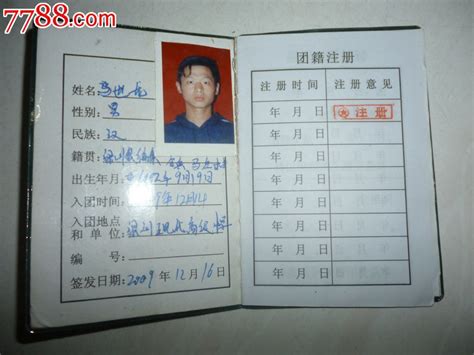 7788.com
姓名
性别: 男
民族: 汉
籍贯:
出生年月: 1992年9月19日
入团时间: 年12月14
入团地点
和单位: 银川 高级中学
编号:
签发日期: 2009年12月16日
团籍注册
注册时间 注册意见
年 月 日 注册
年 月 日
年 月 日
年 月 日
年 月 日
年 月 日
年 月 日